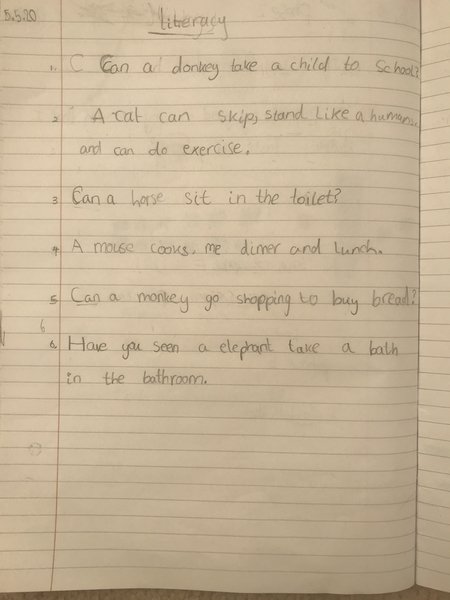 5.5.20
Literacy
1. C Can a donkey take a child to school?
2 A cat can skip, stand like a human..
and can do exercise.
3 Can a horse sit in the toilet?
4 A mouse cooks, me dinner and lunch.
5 Can a monkey go shopping to buy bread?
6
6. Have you seen a elephant take a bath
in the bathroom.